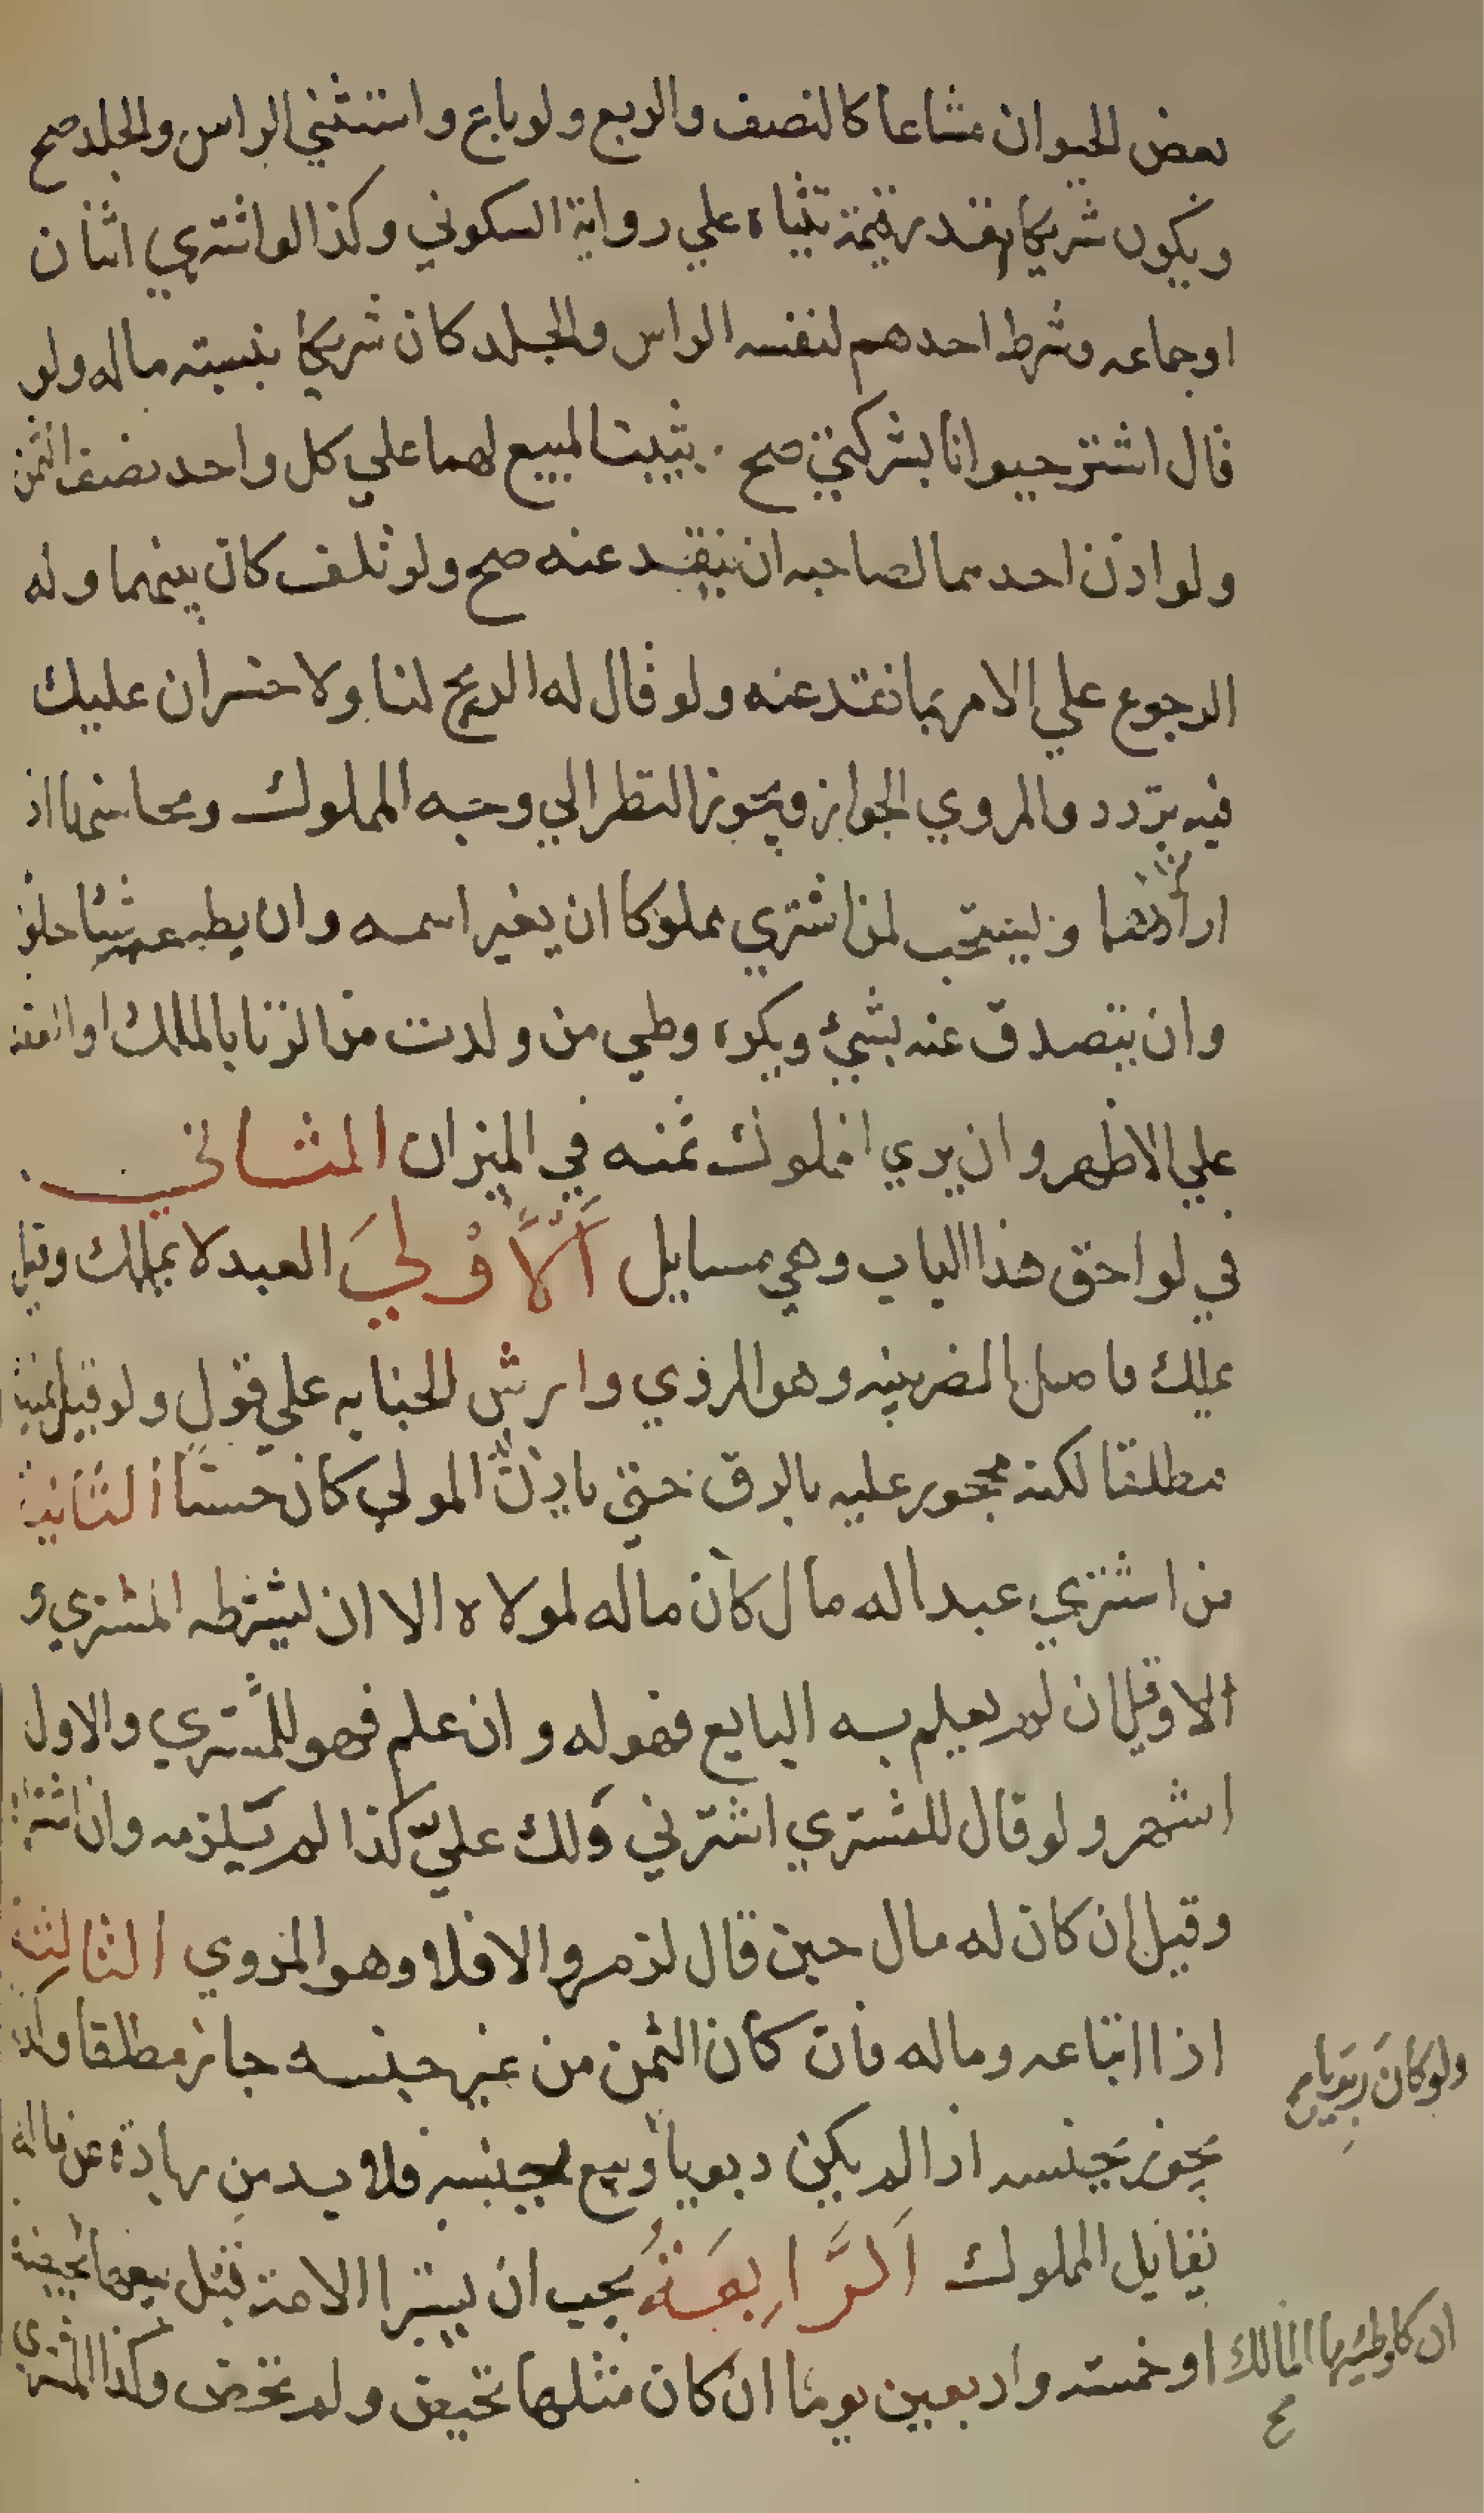 بعض الحيوان مشاعا كالنصف والربع ولو باع واستثني الراس والجلد صح
ويكون شريكا بقدر قيمة ثنياه علي رواية السكوني وكذا لو اشتري اثنان
او جماعه وشرط احدهم لنفسه الراس والجلد كان شريكا بنسبته ماله ولو
قال اشتر حيوانا بشركتي صح يثبت المبيع لهما علي كل واحد نصف الثمن
ولو اذن احدهما لصاحبه ان ينقد عنه صح ولو تلف كان بينهما وله
الرجوع علي الامر بما نقد عنه ولو قال له الربح لنا ولا خسران عليك
فيه تردد والمروي الجواز ويجوز النظر الي وجه المملوك ومحاسنها اذ
اراد وليستحب لمن اشتري مملوكا ان يغير اسمه وان يطعمه شيئا حلو
وان يتصدق عنه بشيء ويكره وطي من ولدت من الزنا بالملك او العقد
علي الاظهر وان يري المملوك ثمنه في الميزان الثالث
في لواحق هذا الباب وهي مسايل اَلْأُوْليَ العبد لا يملك وقيل
يملك فاضل الضريبه وهو المروي وارش الجنايه علي قول ولو قيل يملك
مطلقا لكنه محجور عليه بالرق حتي ياذن المولي كان حسنا الثانية
من اشتري عبدا له مال كان ماله لمولاه الا ان يشترطه المشتري و
الا وقيل ان لم يعلم به البايع فهو له وان علم فهو للمشتري والاول
اشهر ولو قال للمشتري اشترني ولك عليّ كذا لم يلزمه وان اشتراه
وقيل ان كان له مال حين قال لزم والا فلا وهو المروي الثالثة
اذا ابتاعه وماله فان كان الثمن من غير جنسه جاز مطلقا وكذا
ولو كان ربويا
يجوز بجنسه اذا لم يكن ربويا وبيع بجنسه فلا بد من زيادة عن ماله
يقابل المملوك اَلرَّابِعَةُ يجب ان يستبرا الامة قبل بيعها بحيضة
ان كان وطئها المالك
او خمسه واربعين يوما ان كان مثلها تحيض ولم تحض وكذا المشتري